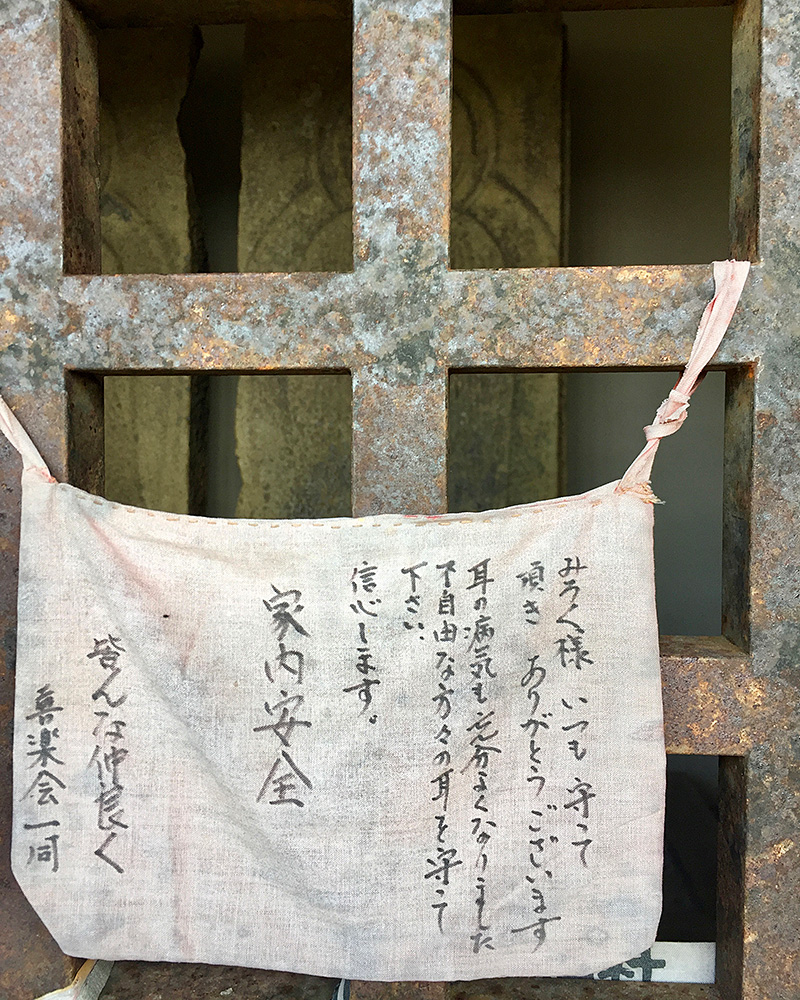 みろく様 いつも 守って
頂き ありがとうございます
耳の病気も 充分よくなりました
不自由な方々の耳を守って
下さい、
信心します。
家内安全
皆んな仲良く
喜楽会一同
村